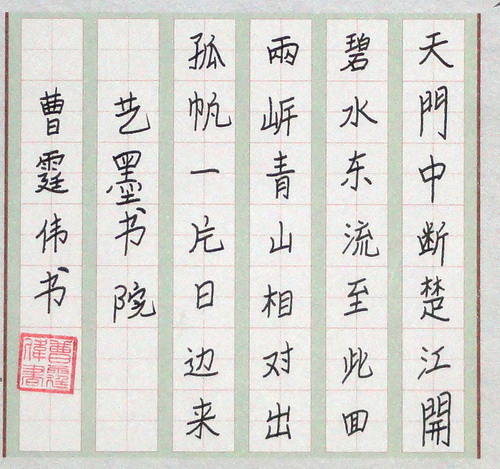 天門中断楚江開
碧水东流至此回
兩岸青山相对出
孤帆一片日边来
艺墨书院
曹霆伟书
曹霆
偉書